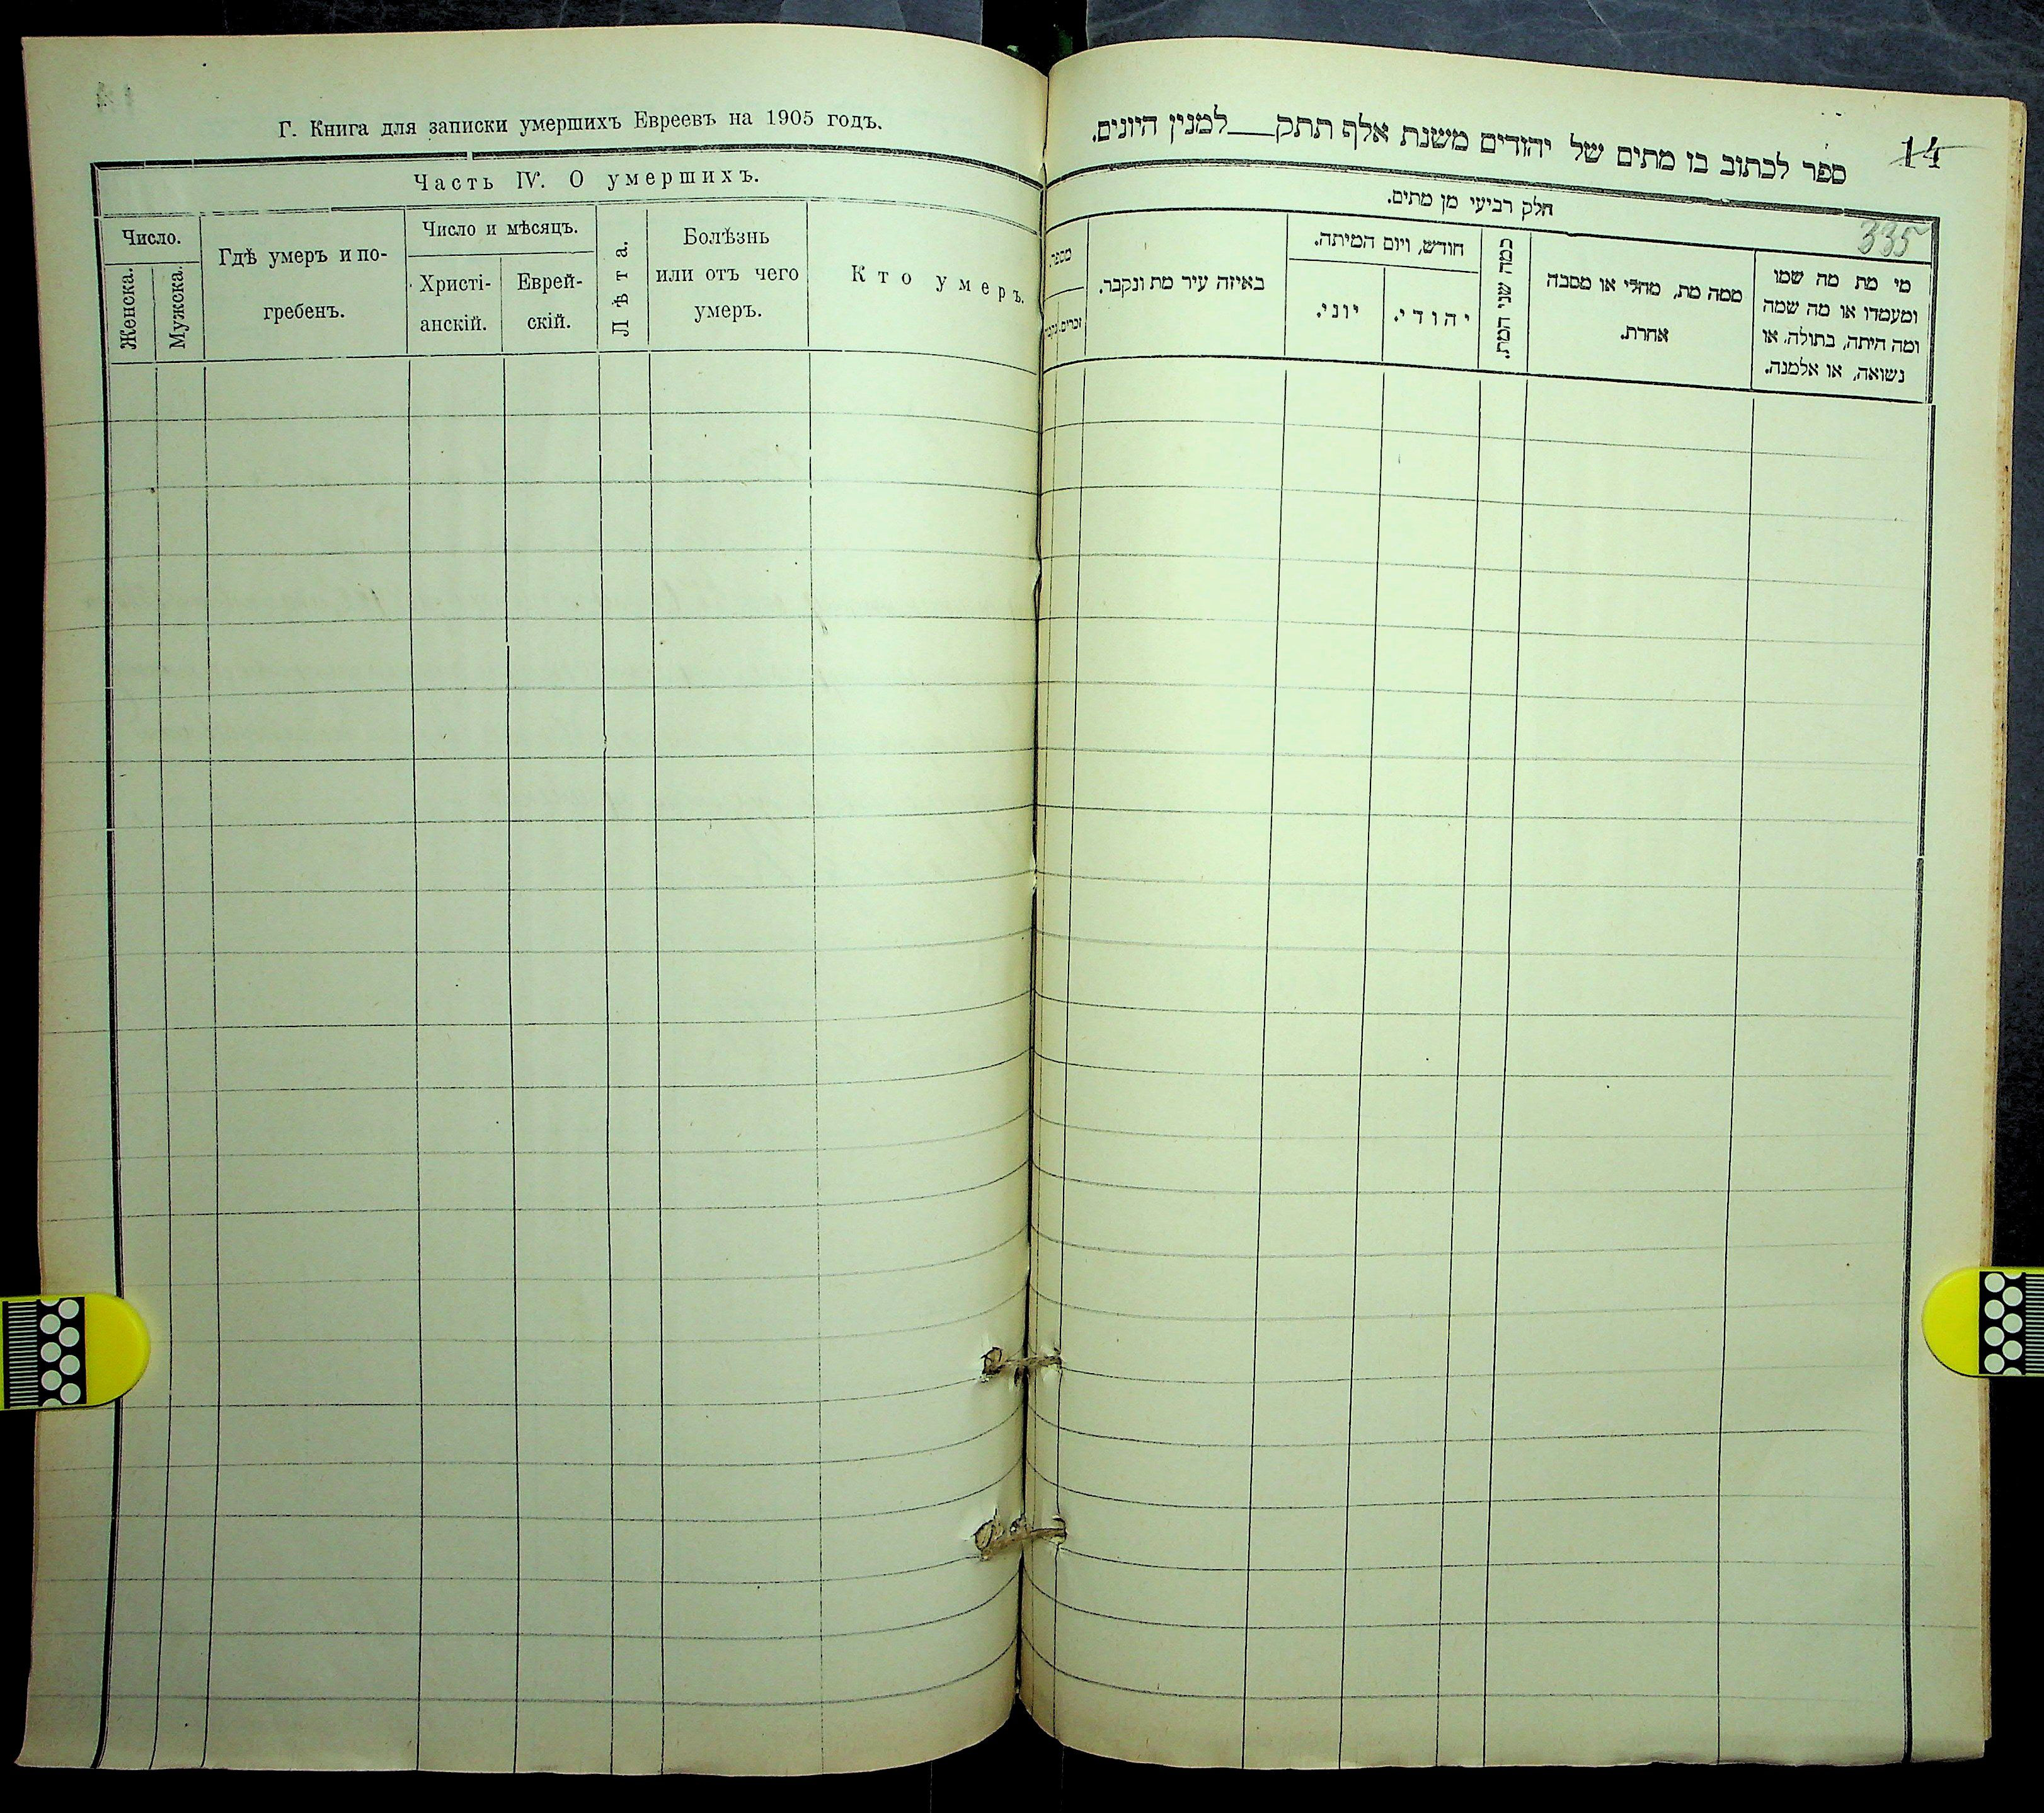 Г. Книга для записки умершихъ Евреевъ на 1905 годъ.
Часть IV. О умершихъ.
Число.
Женска.
Мужска.
Гдѣ умеръ и по-
гребенъ.
Число и мѣсяцъ.
Христі-
анскій.
Еврей-
скій.
Лѣта.
Болѣзнь
или отъ чего
умеръ.
Кто умеръ.
14
ספר לכתוב בו מתים של יהודים משנת אלף תתק למנין היונים.
חלק רביעי מן מתים.
335
מספר
באיזה עיר מת ונקבר.
חודש, ויום המיתה.
יוני.
יהודי.
כמה שני המת.
ממה מת, מחלי או מסבה
אחרת.
מי מת מה שמו
ומעמדו או מה שמה
ומה היתה, בתולה, או
נשואה, או אלמנה.